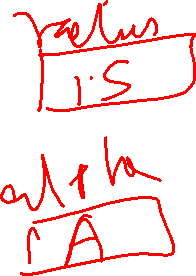 radius
1.5
alpha
A